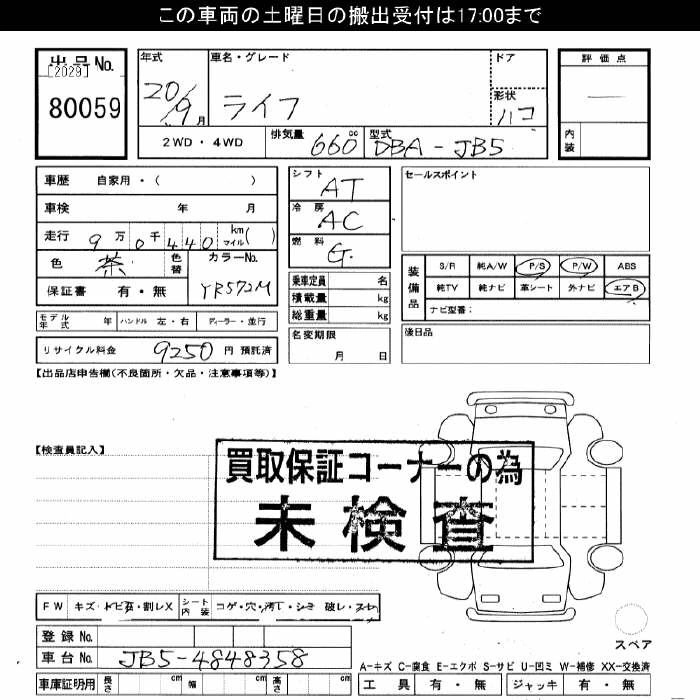 この車両の土曜日の搬出受付は17:00まで
出品No.
[2029]
80059
年式 20/9 月
車名・グレード ライフ
ドア
形状 ハコ
評価点
内装
2WD・4WD 排気量 660 cc 型式 DBA-JB5
車歴 自家用・( )
車検 年 月
走行 9万0千440 km マイル( )
色 茶 色替 カラーNo. YR572M
保証書 有・無
モデル年式 年 ハンドル 左・右 ディーラー・並行
リサイクル料金 9250 円 預託済
シフト AT
冷房 AC
燃料 G.
乗車定員 名
積載量 kg
総重量 kg
名変期限 月 日
セールスポイント
装備品
S/R 純A/W P/S P/W ABS
純TV 純ナビ 革シート 外ナビ エアB
ナビ型番:
後日品
【出品店申告欄(不良箇所・欠品・注意事項等)】
【検査員記入】
買取保証コーナーの為
未検査
FW キズ・トビ石・割レX シート内装 コゲ・穴・汚レ・シミ 破レ・スレ
登録No.
車台No. JB5-4848358
車庫証明用 長さ cm 幅 cm 高さ cm
スペア
A-キズ C-腐食 E-エクボ S-サビ U-凹ミ W-補修 XX-交換済
工具 有・無 ジャッキ 有・無